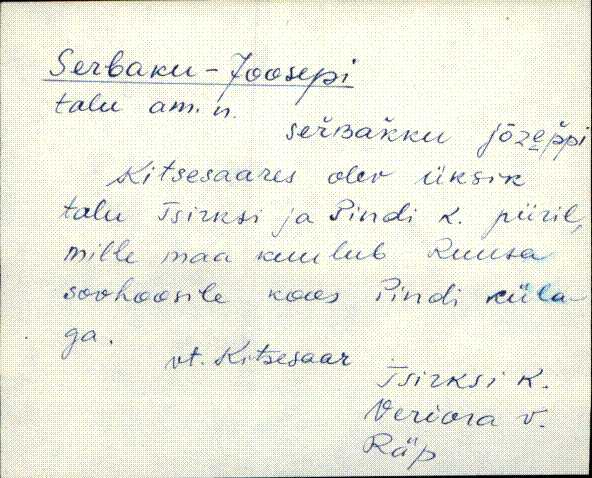 Serbaku-Joosepi
talu am. n.
seřʙaʀ̌ku jōze̬p̌pi
Kitsesaares olev üksik
talu Tsirksi ja Pindi k. piiril,
mille maa kuulub Ruusa
sovhoosile koos Pindi küla-
ga.
vt. Kitsesaar
Tsirksi k.
Veriora v.
Räp